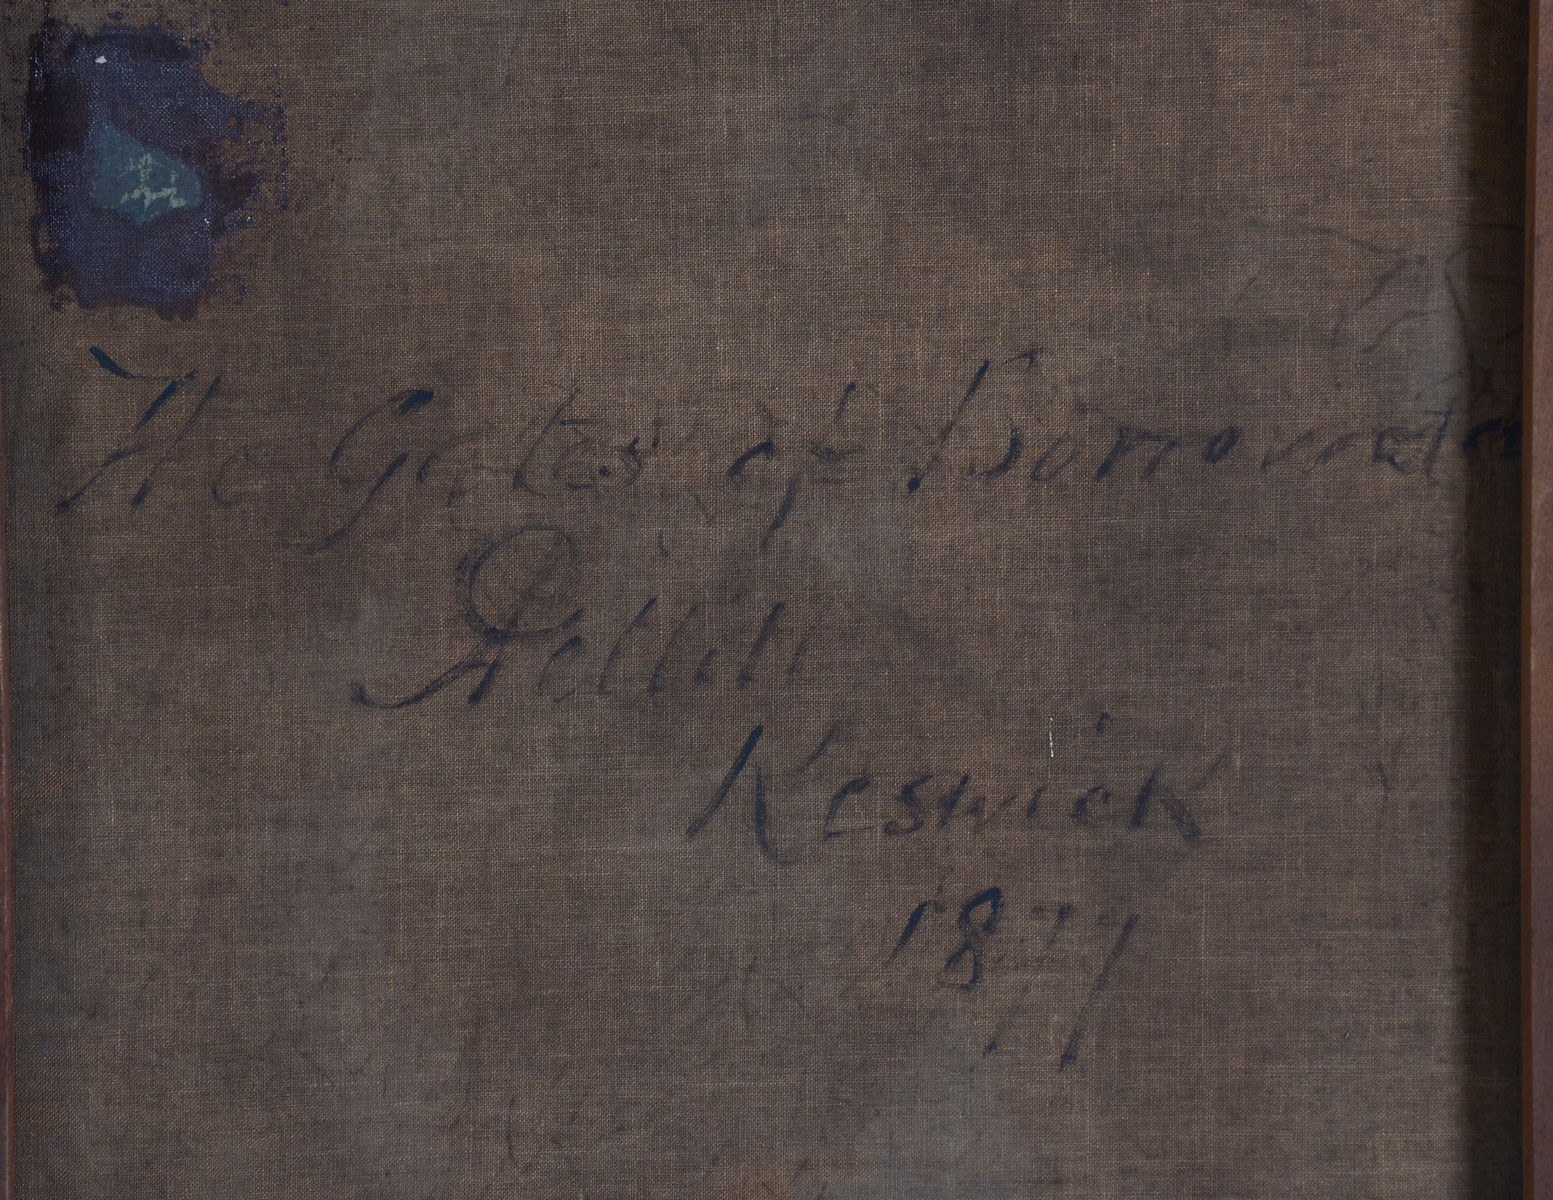 The Gates of Borrowda
Pettitt
Keswick
1877